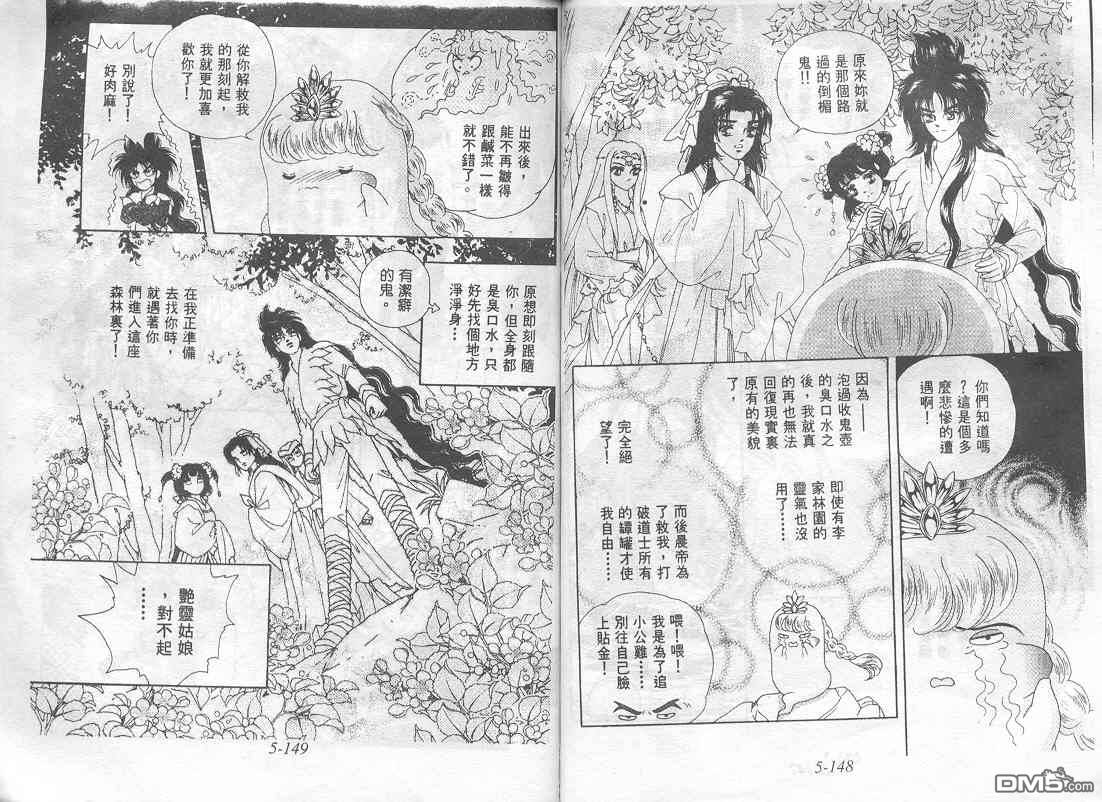 原來妳就
是那個路
過的倒楣
鬼!!
你們知道嗎
?這是個多
麼悲慘的遭
遇啊!
因為——
泡過收鬼壺
的臭口水之
後,我就真
的再也無法
回復現實裏
原有的美貌
了。
即使有李
家林園的
靈氣也沒
用了……
完全絕
望了!
而後晨帝為
了救我,打
破道士所有
的罈罐才使
我自由……
喂!喂!
我是為了追
小公雞……
別往自己臉
上貼金!
5-148
出來後,
能不再皺得
跟鹹菜一樣
就不錯了。
從你解救我
的那刻起,
我就更加喜
歡你了!
別說了!
好肉麻!
原想即刻跟隨
你,但全身都
是臭口水,只
好先找個地方
淨淨身…
有潔癖
的鬼。
在我正準備
去找你時,
就遇著你
們進入這座
森林裏了!
艷靈姑娘
,對不起
……
5-149
DM5.com